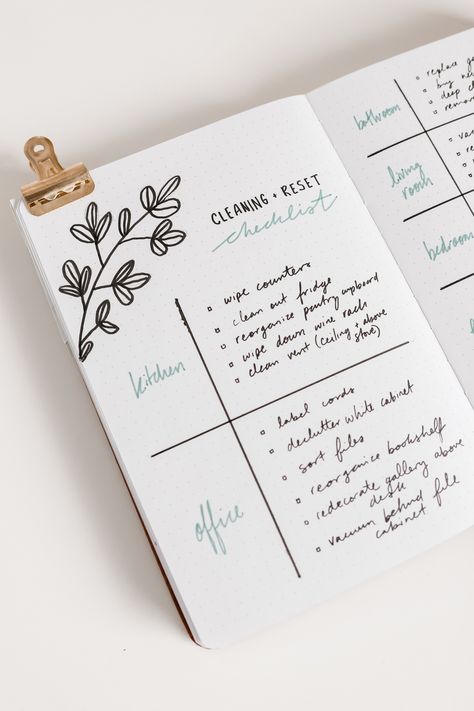 CLEANING + RESET
checklist
kitchen
wipe counters
clean out fridge
reorganize pantry cupboard
wipe down wine rack
clean vent (ceiling + above
stove)
office
label cords
declutter white cabinet
sort files
reorganize bookshelf
redecorate gallery above
desk
vacuum behind file
cabinet
bathroom
replace
buy
deep
living
room
bedroom